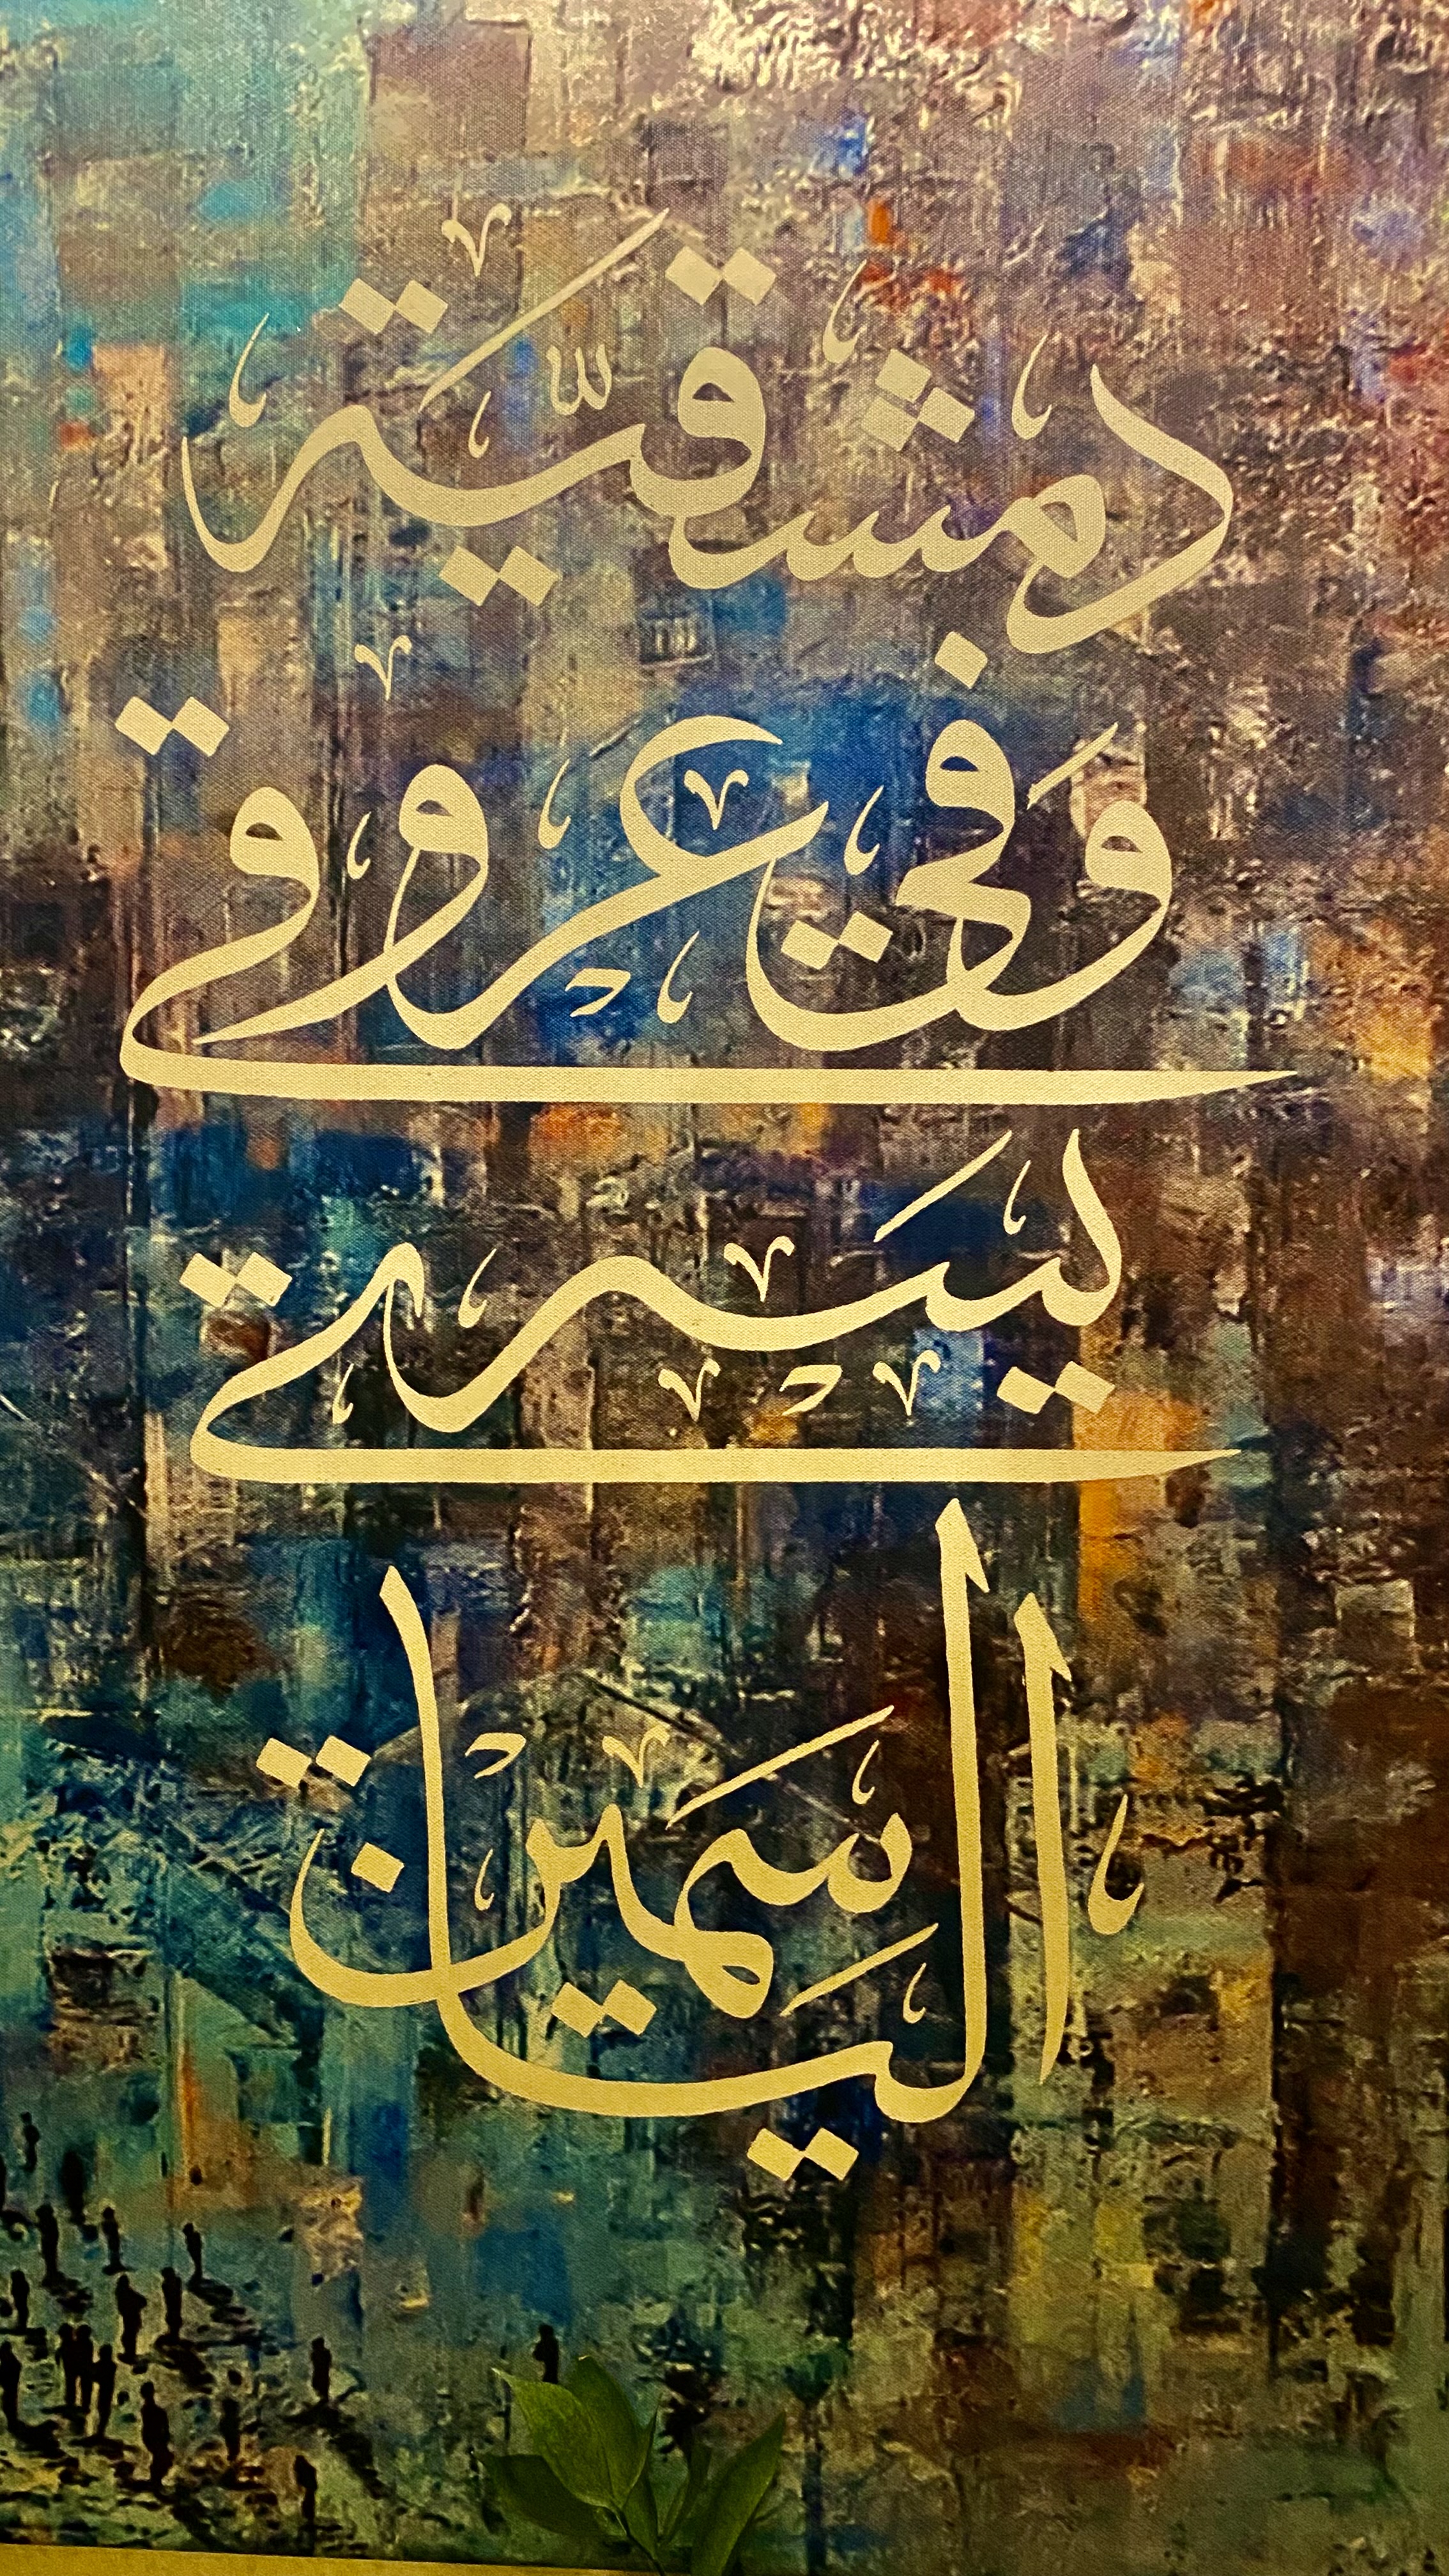 دمشقيّة
وَفي عروقي
يَسري
الياسَمين